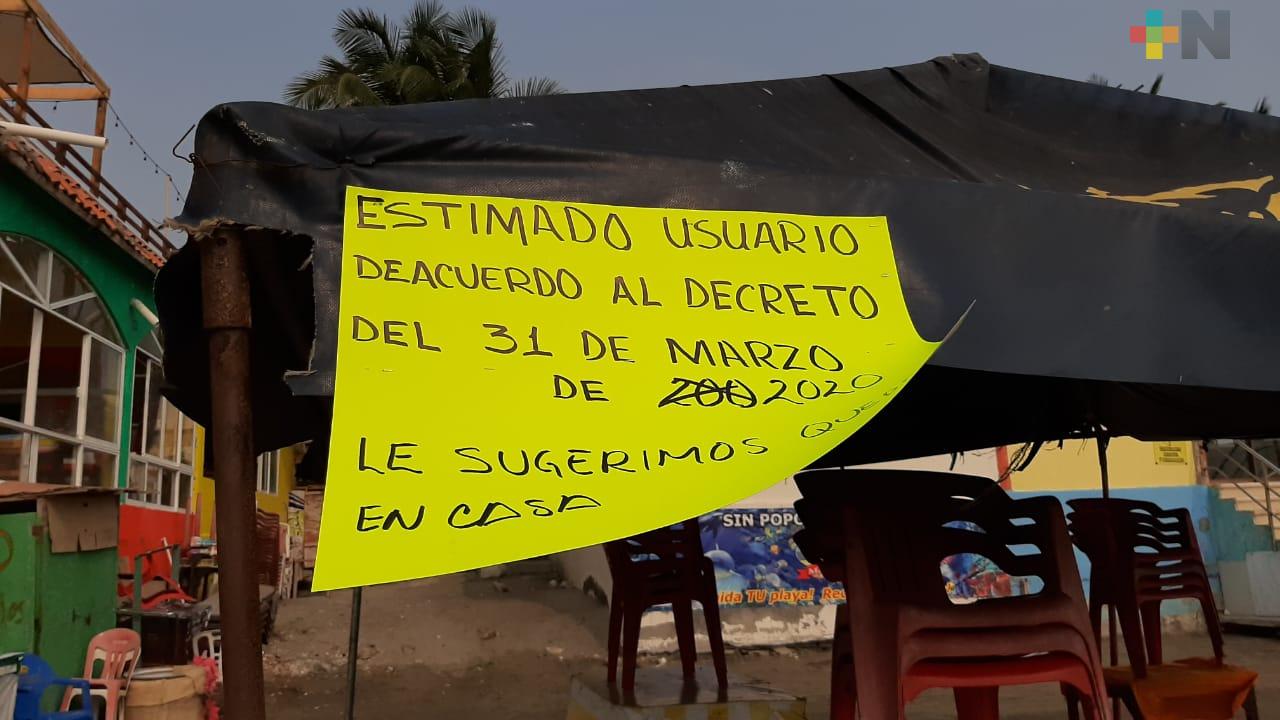 +N
ESTIMADO USUARIO
DEACUERDO AL DECRETO
DEL 31 DE MARZO
DE 2020
LE SUGERIMOS
EN CASA
SIN POPO
uida TU playa!